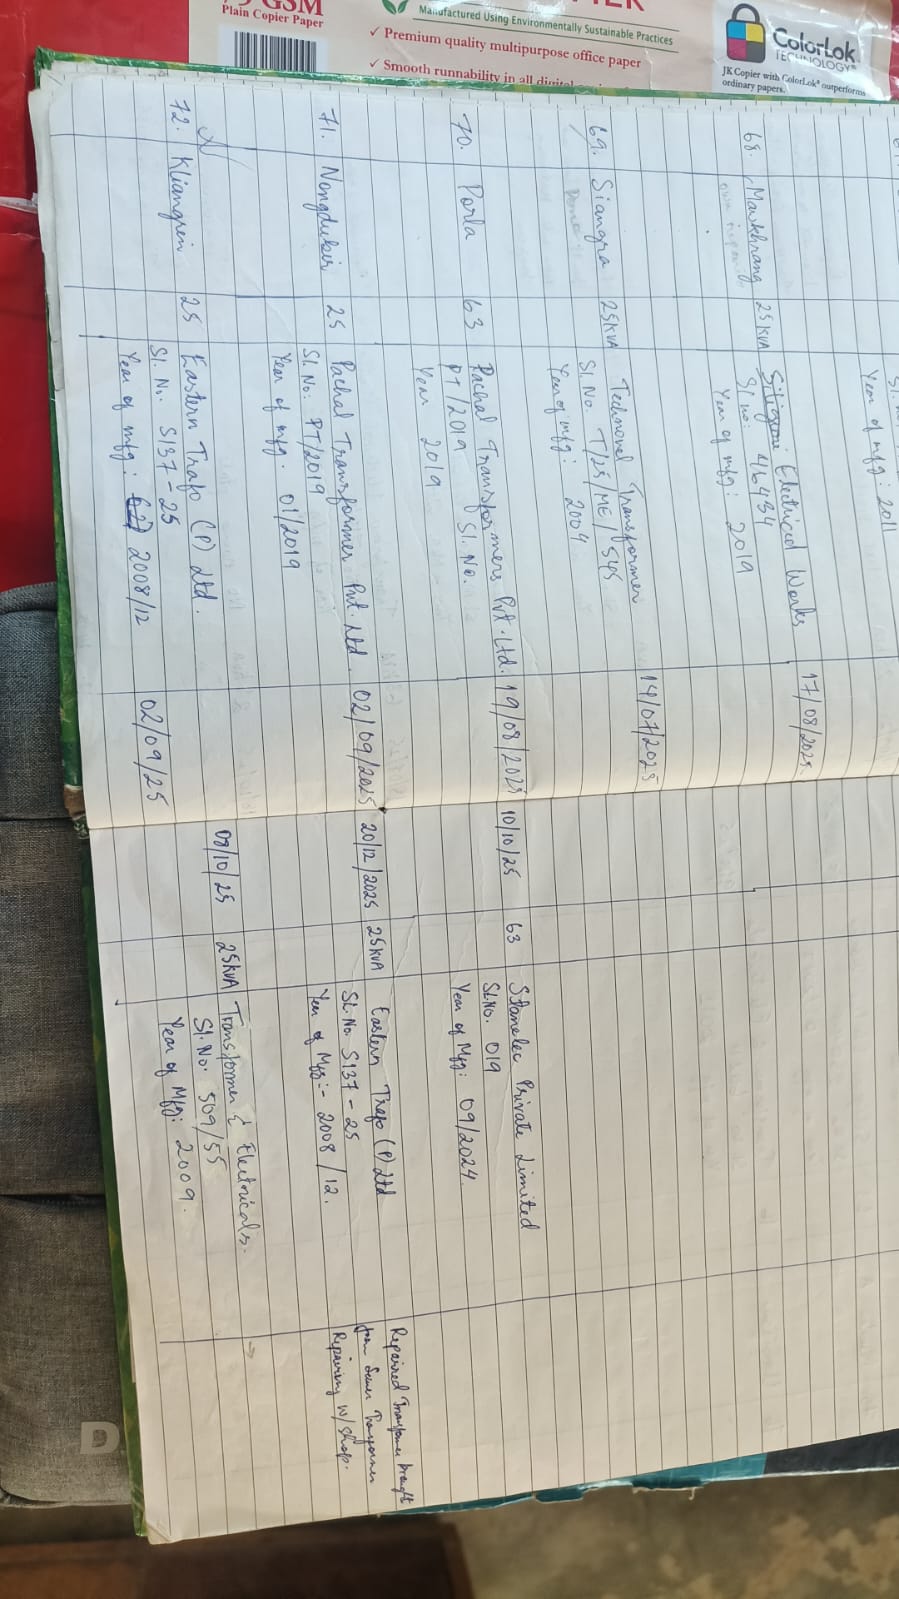 GSM
Plain Copier Paper
Manufactured Using Environmentally Sustainable Practices
✓ Premium quality multipurpose office paper
✓ Smooth runnability in all digital
ColorLok
TECHNOLOGY®
JK Copier with ColorLok® outperforms
ordinary papers.
Year of mfg: 2011
68. Mawkhrang 25KVA Electrical Works 17/08/2025
Sl no: 46434
Year of mfg: 2019
69. Siangra 25KVA Technovel Transformer 14/07/2025
Sl. No T/25/ME/545
Year of mfg: 2004
70. Porla 63 Pachal Transformers Pvt. Ltd. 19/08/2025 10/10/25 63 Stanelec Private Limited
PT/2019 Sl. No. Sl.No. 019
Year 2019 Year of Mfg: 09/2024
71. Nongdukir 25 Pachal Transformer Pvt. Ltd. 02/09/2025 20/12/2025 25KVA Eastern Trafo (P) Ltd Repaired Transformer brought
Sl. No: PT/2019 Sl. No. S137-25 from Transformer
Year of mfg. 01/2019 Year of Mfg:- 2008/12. Repairing W/Shop.
72. Kliangrein 25 Eastern Trafo (P) Ltd. 02/09/25 08/10/25 25KVA Transformer & Electricals.
Sl. No. S137-25 Sl. No. 509/55
Year of mfg: 2008/12 Year of Mfg: 2009.
D